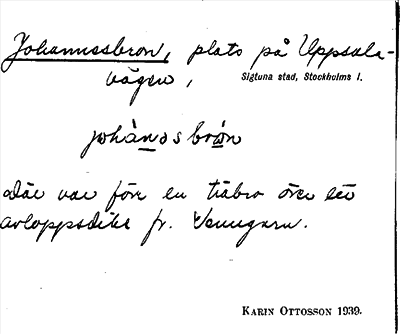 Johannesbron, plats på Uppsala-
vägen, Sigtuna stad, Stockholms l.
johànəsbrὼn
där var förr en träbro över ett
avloppsdike fr. Venngarn.
KARIN OTTOSSON 1939.